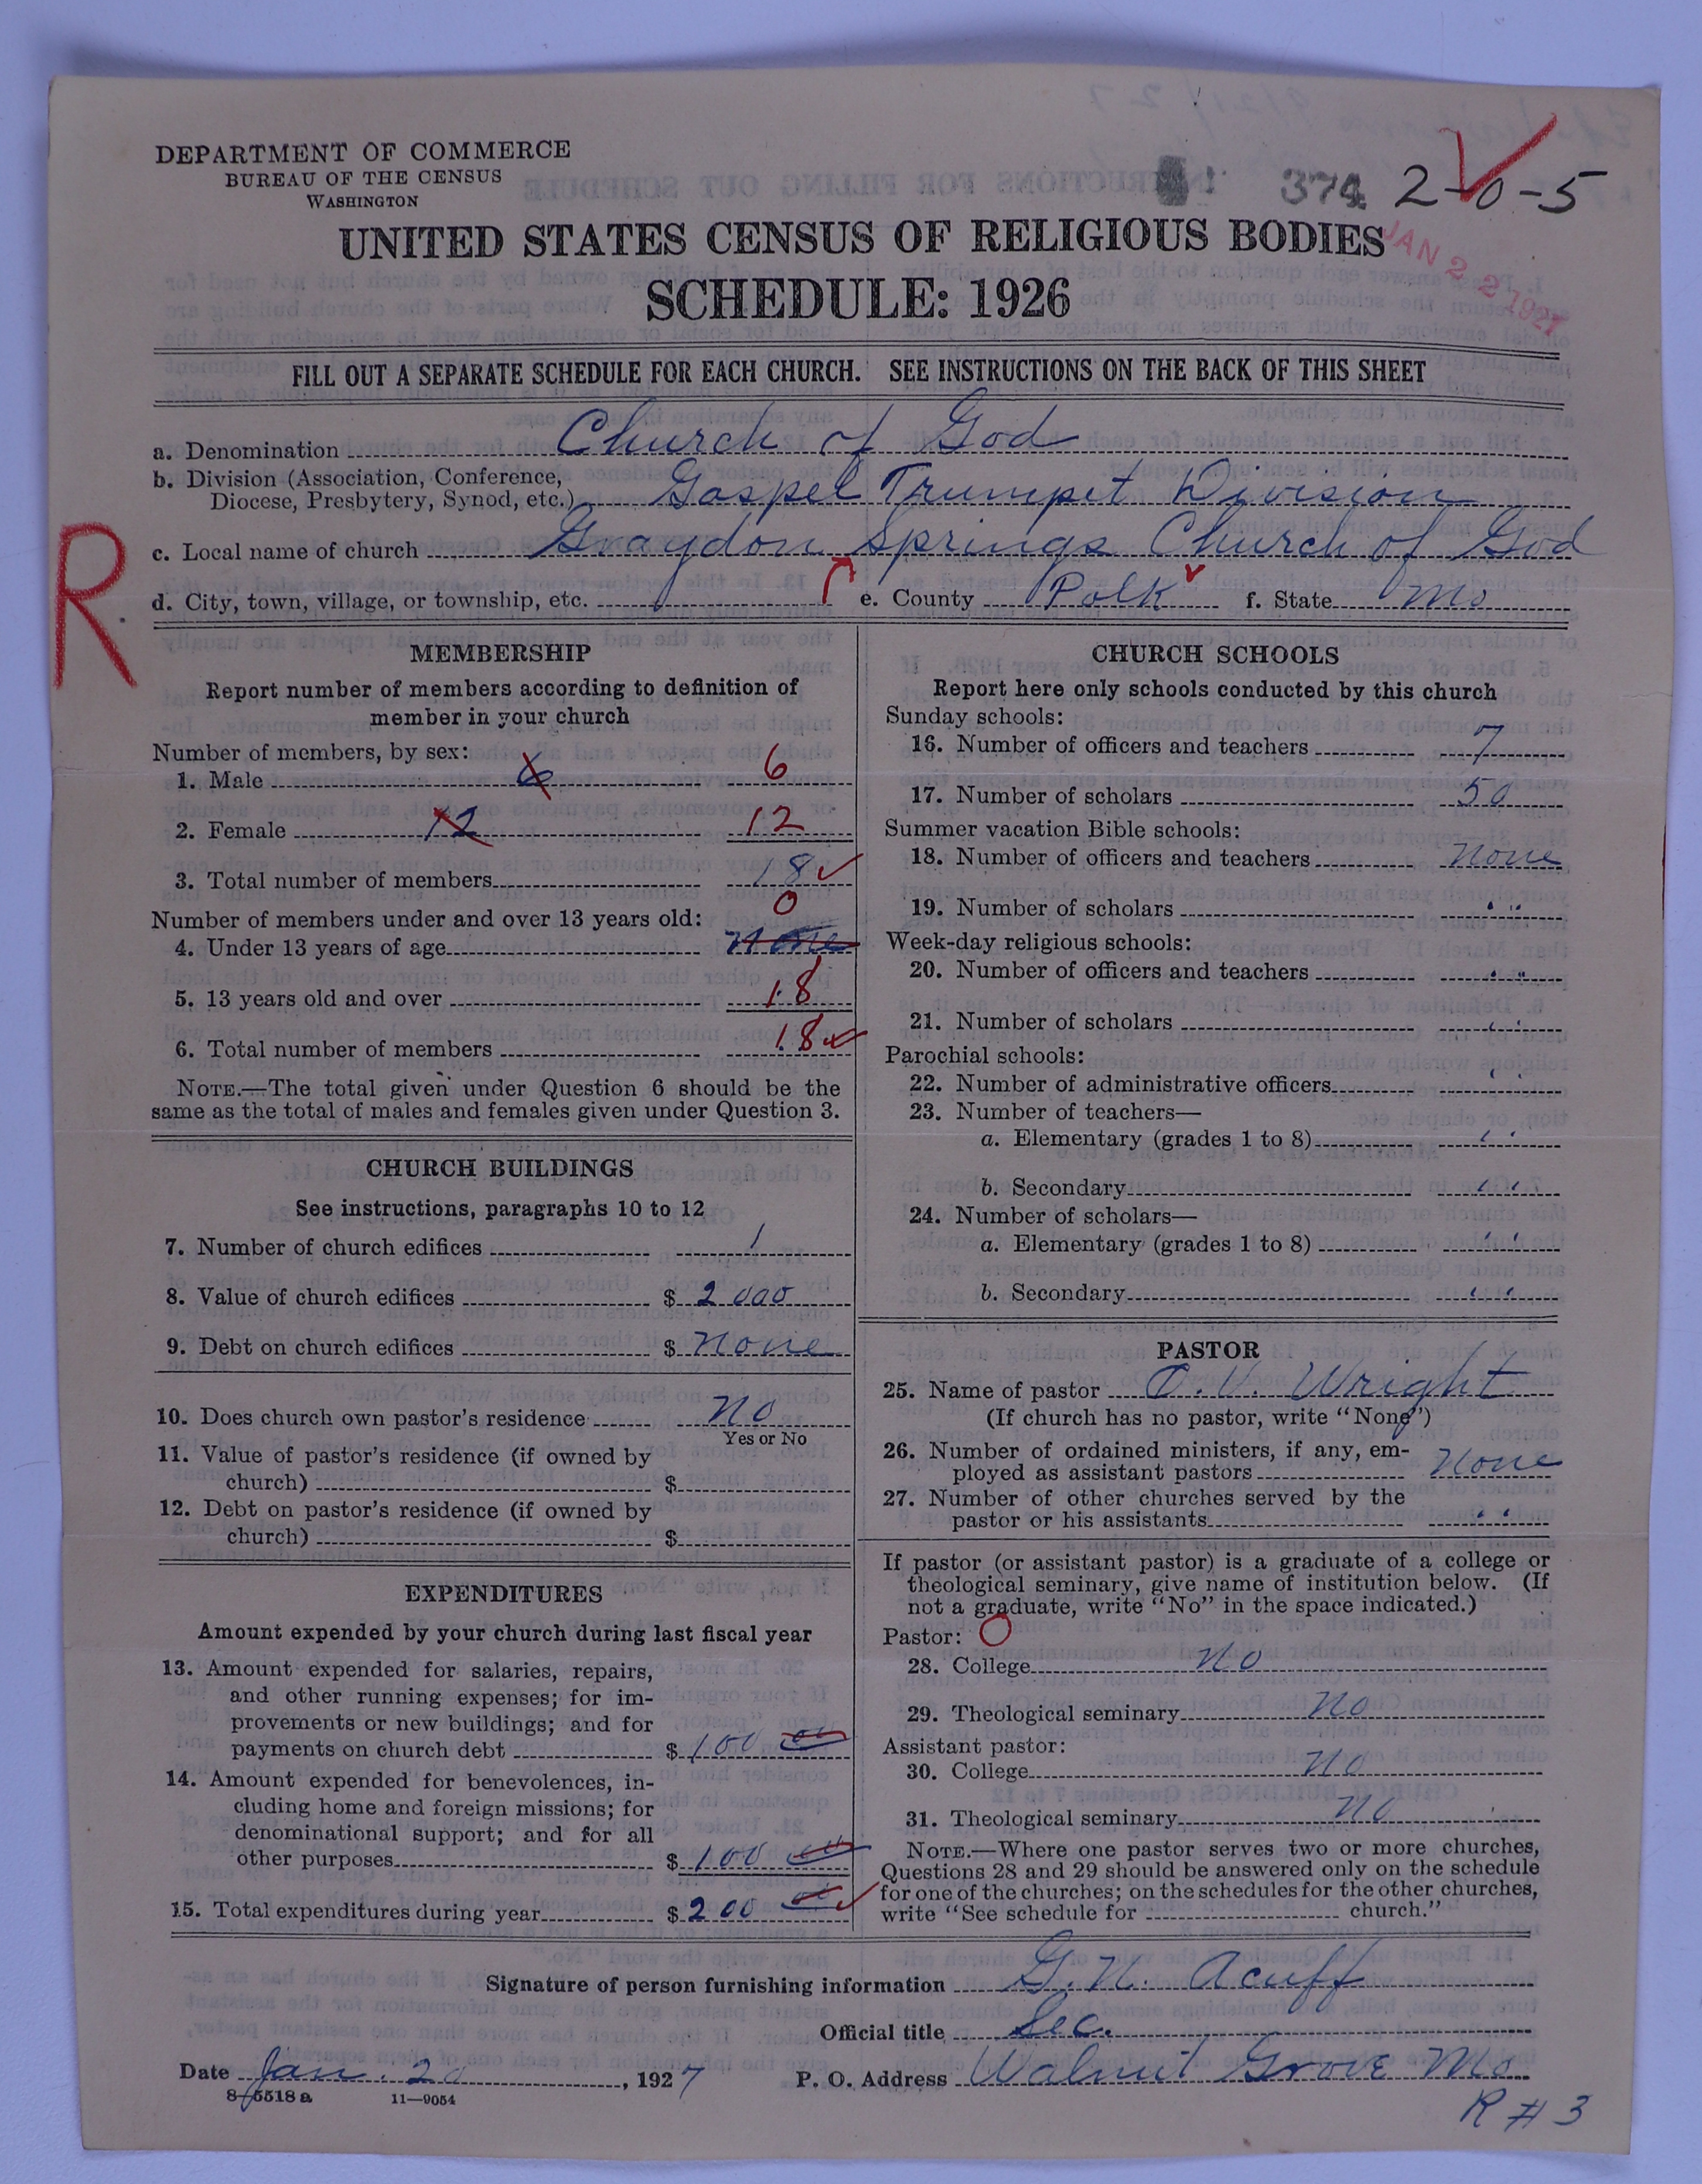 DEPARTMENT OF COMMERCE
BUREAU OF THE CENSUS
WASHINGTON
374 2-0-5
UNITED STATES CENSUS OF RELIGIOUS BODIES
JAN 22 1927
SCHEDULE: 1926
FILL OUT A SEPARATE SCHEDULE FOR EACH CHURCH. SEE INSTRUCTIONS ON THE BACK OF THIS SHEET
a. Denomination Church of God
b. Division (Association, Conference,
Diocese, Presbytery, Synod, etc.) Gospel Trumpet Division
R
c. Local name of church Graydon Springs Church of God
d. City, town, village, or township, etc. e. County Polk f. State Mo
MEMBERSHIP
Report number of members according to definition of
member in your church
Number of members, by sex:
1. Male 6 6
2. Female 12 12
3. Total number of members 18
0
Number of members under and over 13 years old:
4. Under 13 years of age None
5. 13 years old and over 18
6. Total number of members 18
NOTE.—The total given under Question 6 should be the
same as the total of males and females given under Question 3.
CHURCH BUILDINGS
See instructions, paragraphs 10 to 12
7. Number of church edifices 1
8. Value of church edifices $ 2000
9. Debt on church edifices $ None
10. Does church own pastor's residence No
Yes or No
11. Value of pastor's residence (if owned by
church) $
12. Debt on pastor's residence (if owned by
church) $
EXPENDITURES
Amount expended by your church during last fiscal year
13. Amount expended for salaries, repairs,
and other running expenses; for im-
provements or new buildings; and for
payments on church debt $ 100 00
14. Amount expended for benevolences, in-
cluding home and foreign missions; for
denominational support; and for all
other purposes $ 100 00
15. Total expenditures during year $ 200 00
CHURCH SCHOOLS
Report here only schools conducted by this church
Sunday schools:
16. Number of officers and teachers 7
17. Number of scholars 50
Summer vacation Bible schools:
18. Number of officers and teachers None
19. Number of scholars " "
Week-day religious schools:
20. Number of officers and teachers " "
21. Number of scholars " "
Parochial schools:
22. Number of administrative officers " "
23. Number of teachers—
a. Elementary (grades 1 to 8) " "
b. Secondary " "
24. Number of scholars—
a. Elementary (grades 1 to 8) " "
b. Secondary " "
PASTOR
25. Name of pastor O. V. Wright
(If church has no pastor, write "None")
26. Number of ordained ministers, if any, em-
ployed as assistant pastors None
27. Number of other churches served by the
pastor or his assistants " "
If pastor (or assistant pastor) is a graduate of a college or
theological seminary, give name of institution below. (If
not a graduate, write "No" in the space indicated.)
Pastor: O
28. College No
29. Theological seminary No
Assistant pastor:
30. College No
31. Theological seminary No
NOTE.—Where one pastor serves two or more churches,
Questions 28 and 29 should be answered only on the schedule
for one of the churches; on the schedules for the other churches,
write "See schedule for church."
Signature of person furnishing information G. N. Acuff
Official title Sec.
Date Jan. 20, 1927 P. O. Address Walnut Grove Mo
8-5518 a 11-9054
R # 3